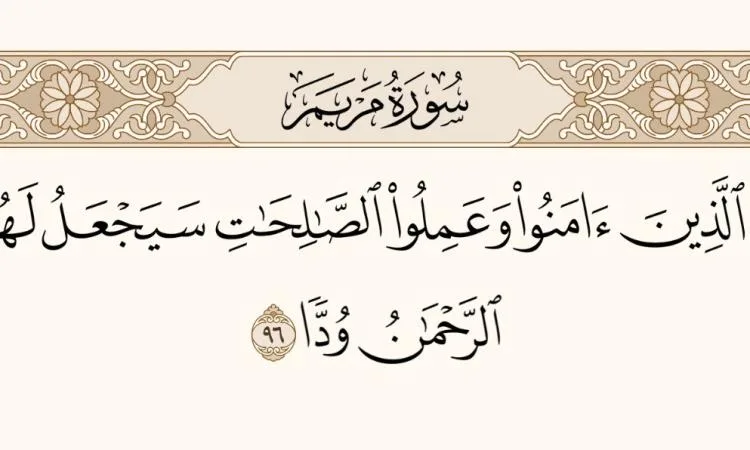 سُورَةُ مَرْيَمَ
ٱلَّذِينَ ءَامَنُوا۟ وَعَمِلُوا۟ ٱلصَّـٰلِحَـٰتِ سَيَجْعَلُ لَهُ
ٱلرَّحْمَـٰنُ وُدًّا ٩٦